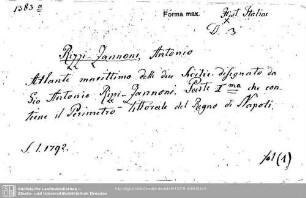 1383 e
Forma max.
Hist. Italiae
D. 3
Rizzi-Zannoni, Antonio
Atlante marittimo delle due Sicilie disegnato da
Gio Antonio Rizzi-Zannoni. Parte I ma che con
tiene il Perimetro littorale del Regno di Napoli.
S. l. 1792.
fol (1)